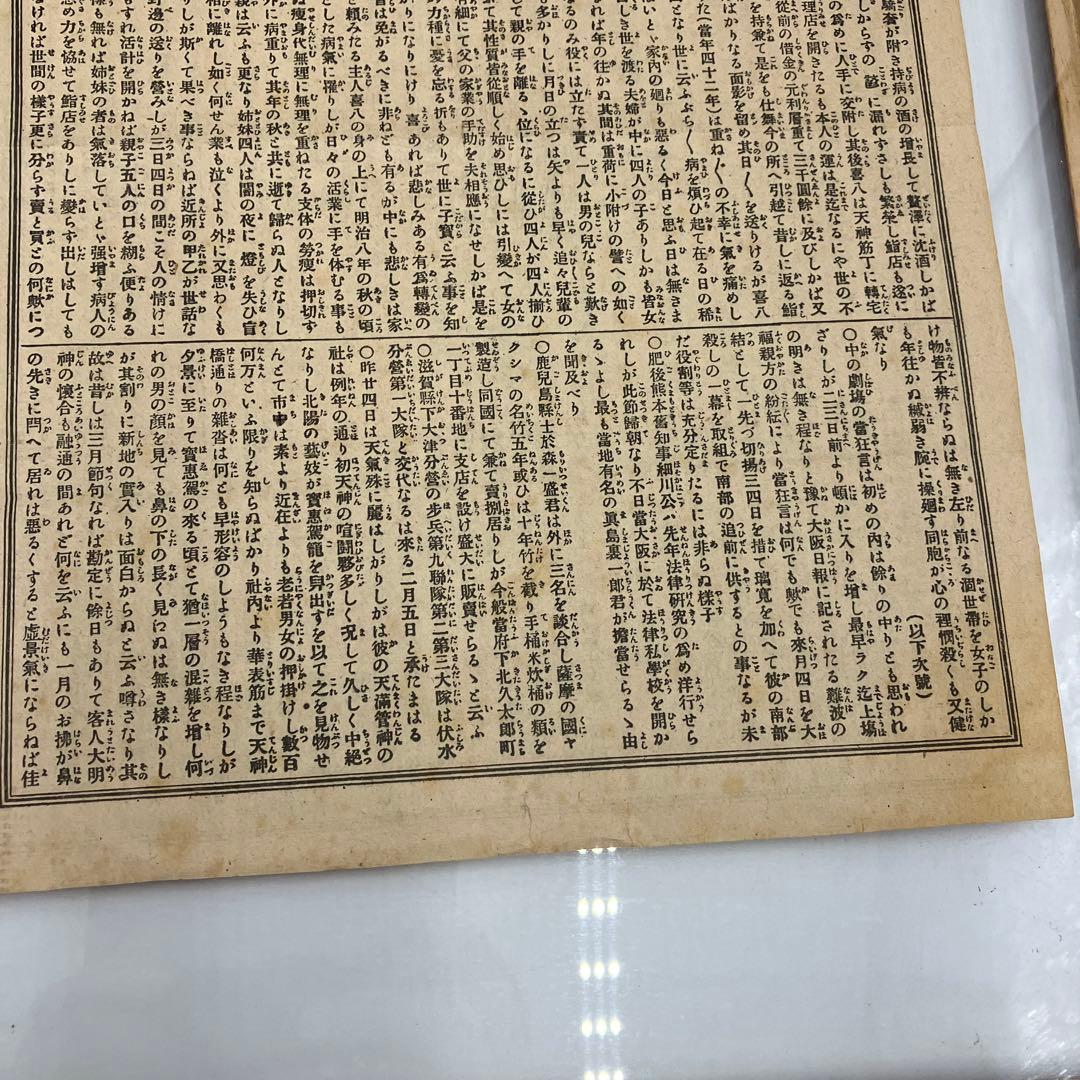 驕奢が附き持病の酒の增長して贅澤に沈酒しかば
に漏れずさしも繁榮し鮨店も遂に
の爲めに人手に交附し其後喜八は天神筋丁に轉宅
理店を開きたるも本人の運は是迄なるにや世の不
從前の借金の元利層重て三千圓餘に及びしかば又
を持兼て是をも仕舞今の所へ引越て昔しに返る鮨
ばかりなる面影を留め其日〱を送りけるが喜八
た(當年四十二年)は重ね〱の不幸に氣を痛めし
となり世に云ふぶら〱病を煩ひ起て在る日の稀
いと家內の廻りも惡るく今日と思ふ日は無きま
しき世を渡る夫婦が中に四人の子ありしかも皆女
のみ役には立たず責て一人は男の兒ならと歎き
ば年の往かぬ其間は重荷に小附けの譬への如く
も多かりしに月日の立つは矢よりも早く追々兒輩の
して親の手を離るゝ位になるに從ひ四人が四人揃ひ
て其性質皆從順しく始め思ひしには引變へて女の
有細にて父の家業の手助を夫相應になせしかば是を
力種に憂を忘る折もあり世に子寶と云ふ事を知
がりになりにけり喜あれば悲しみある有爲轉變の
者は免がるべきに非ねども有るが中にも悲しきは家
と賴みたる主人喜八の身の上にて明治八年の秋の頃
とした病氣に罹りしが日々の活業に手を休むる事も
ぬ瘦身代無理に無理を重ねたる支体の勞瘦は押切ず
外に病重りて其年の秋と共に逝て歸らぬ人となりし
親は云ふも更なり姉妹四人は闇の夜に燈を失ひ盲
相に離れし如く何せん業も泣くより外に又思わくも
りしが斯くて果べき事ならねば近所の甲乙が世話な
野邊の送りを營みしが三日四日の間こそ人の情けに
もすれ活計を開かねば親子五人の口を糊ふ便りある
樣も無れば姉妹の者は氣落してい
の力を協せて鮨店をありしに變らず出しはしても
るければ世間の樣子更に分らず賣と買との何歟につ
け物皆不辨ならぬは無き左り前なる涸世帶を女子のしか
も年往かぬ緘弱き腕に操廻す同胞が心の裡憫殺くも又健
氣なり (以下次號)
〇中の劇塲の當狂言は初めの內は餘りの中りとも思われ
ざりしが二三日前より頓かに入りを增し最早ラク迄上塲
の明きは無き程なりと豫て大阪日報に記されたる難波の
福親方の紛紜により當狂言は何でも歟でも來月四日を大
結として一先づ切揚三四日を措て瑞寬を加へて彼の南部
殺しの一幕を取組で南部の追前に供するとの事なるが未
だ役割等は充分定りたるには非らぬ樣子
〇肥後熊本舊知事細川公ハ先年法律研究の爲め洋行せら
れしが此節歸朝なり不日當大阪に於て法律私學校を開か
るゝよし最も當地有名の眞島裏一郞君が擔當せらるゝ由
を聞及べり
〇鹿兒島縣士於森一盛君は外に三名を談合し薩摩の國ヤ
クシマの名竹五年或ひは十年竹を截り手桶米炊桶の類を
製造し同國にて兼て賣捌居りしが今般當府下北久太郞町
一丁目十番地に支店を設け盛大に販賣せらるゝと云ふ
〇滋賀縣下大津分營の步兵第九聯隊第二第三大隊は伏水
分營第一大隊と交代なるは來る二月五日と承たまはる
〇昨廿四日は天氣殊に麗はしがりしがは彼の天滿菅神の
社は例年の通り初天神の喧鬪夥多しく況して久しく中絕
なりし北陽の藝妓が寶惠駕籠を舁出すを以て之を見物せ
んとて市中は素より近在よりも老若男女の押掛けし數百
何万といふ限りを知らぬばかり社內より華表筋まで天神
橋通りの雜沓は何とも早形容のしようもなき程なりしが
夕景に至りて寶惠駕の來る頃とて猶一層の混雜を增し何
れの男の顏を見ても鼻の下の長く見ゆぬは無き樣なりし
が其割りに新地の實入りは面白からぬと云ふ噂さなり其
故は昔しは三月節句なれば勘定に餘日もありて客人大明
神の懷合も融通の間あれど何を云ふにも一月のお拂が鼻
の先きに閊へて居れは惡るくすると虛景氣にならねば佳